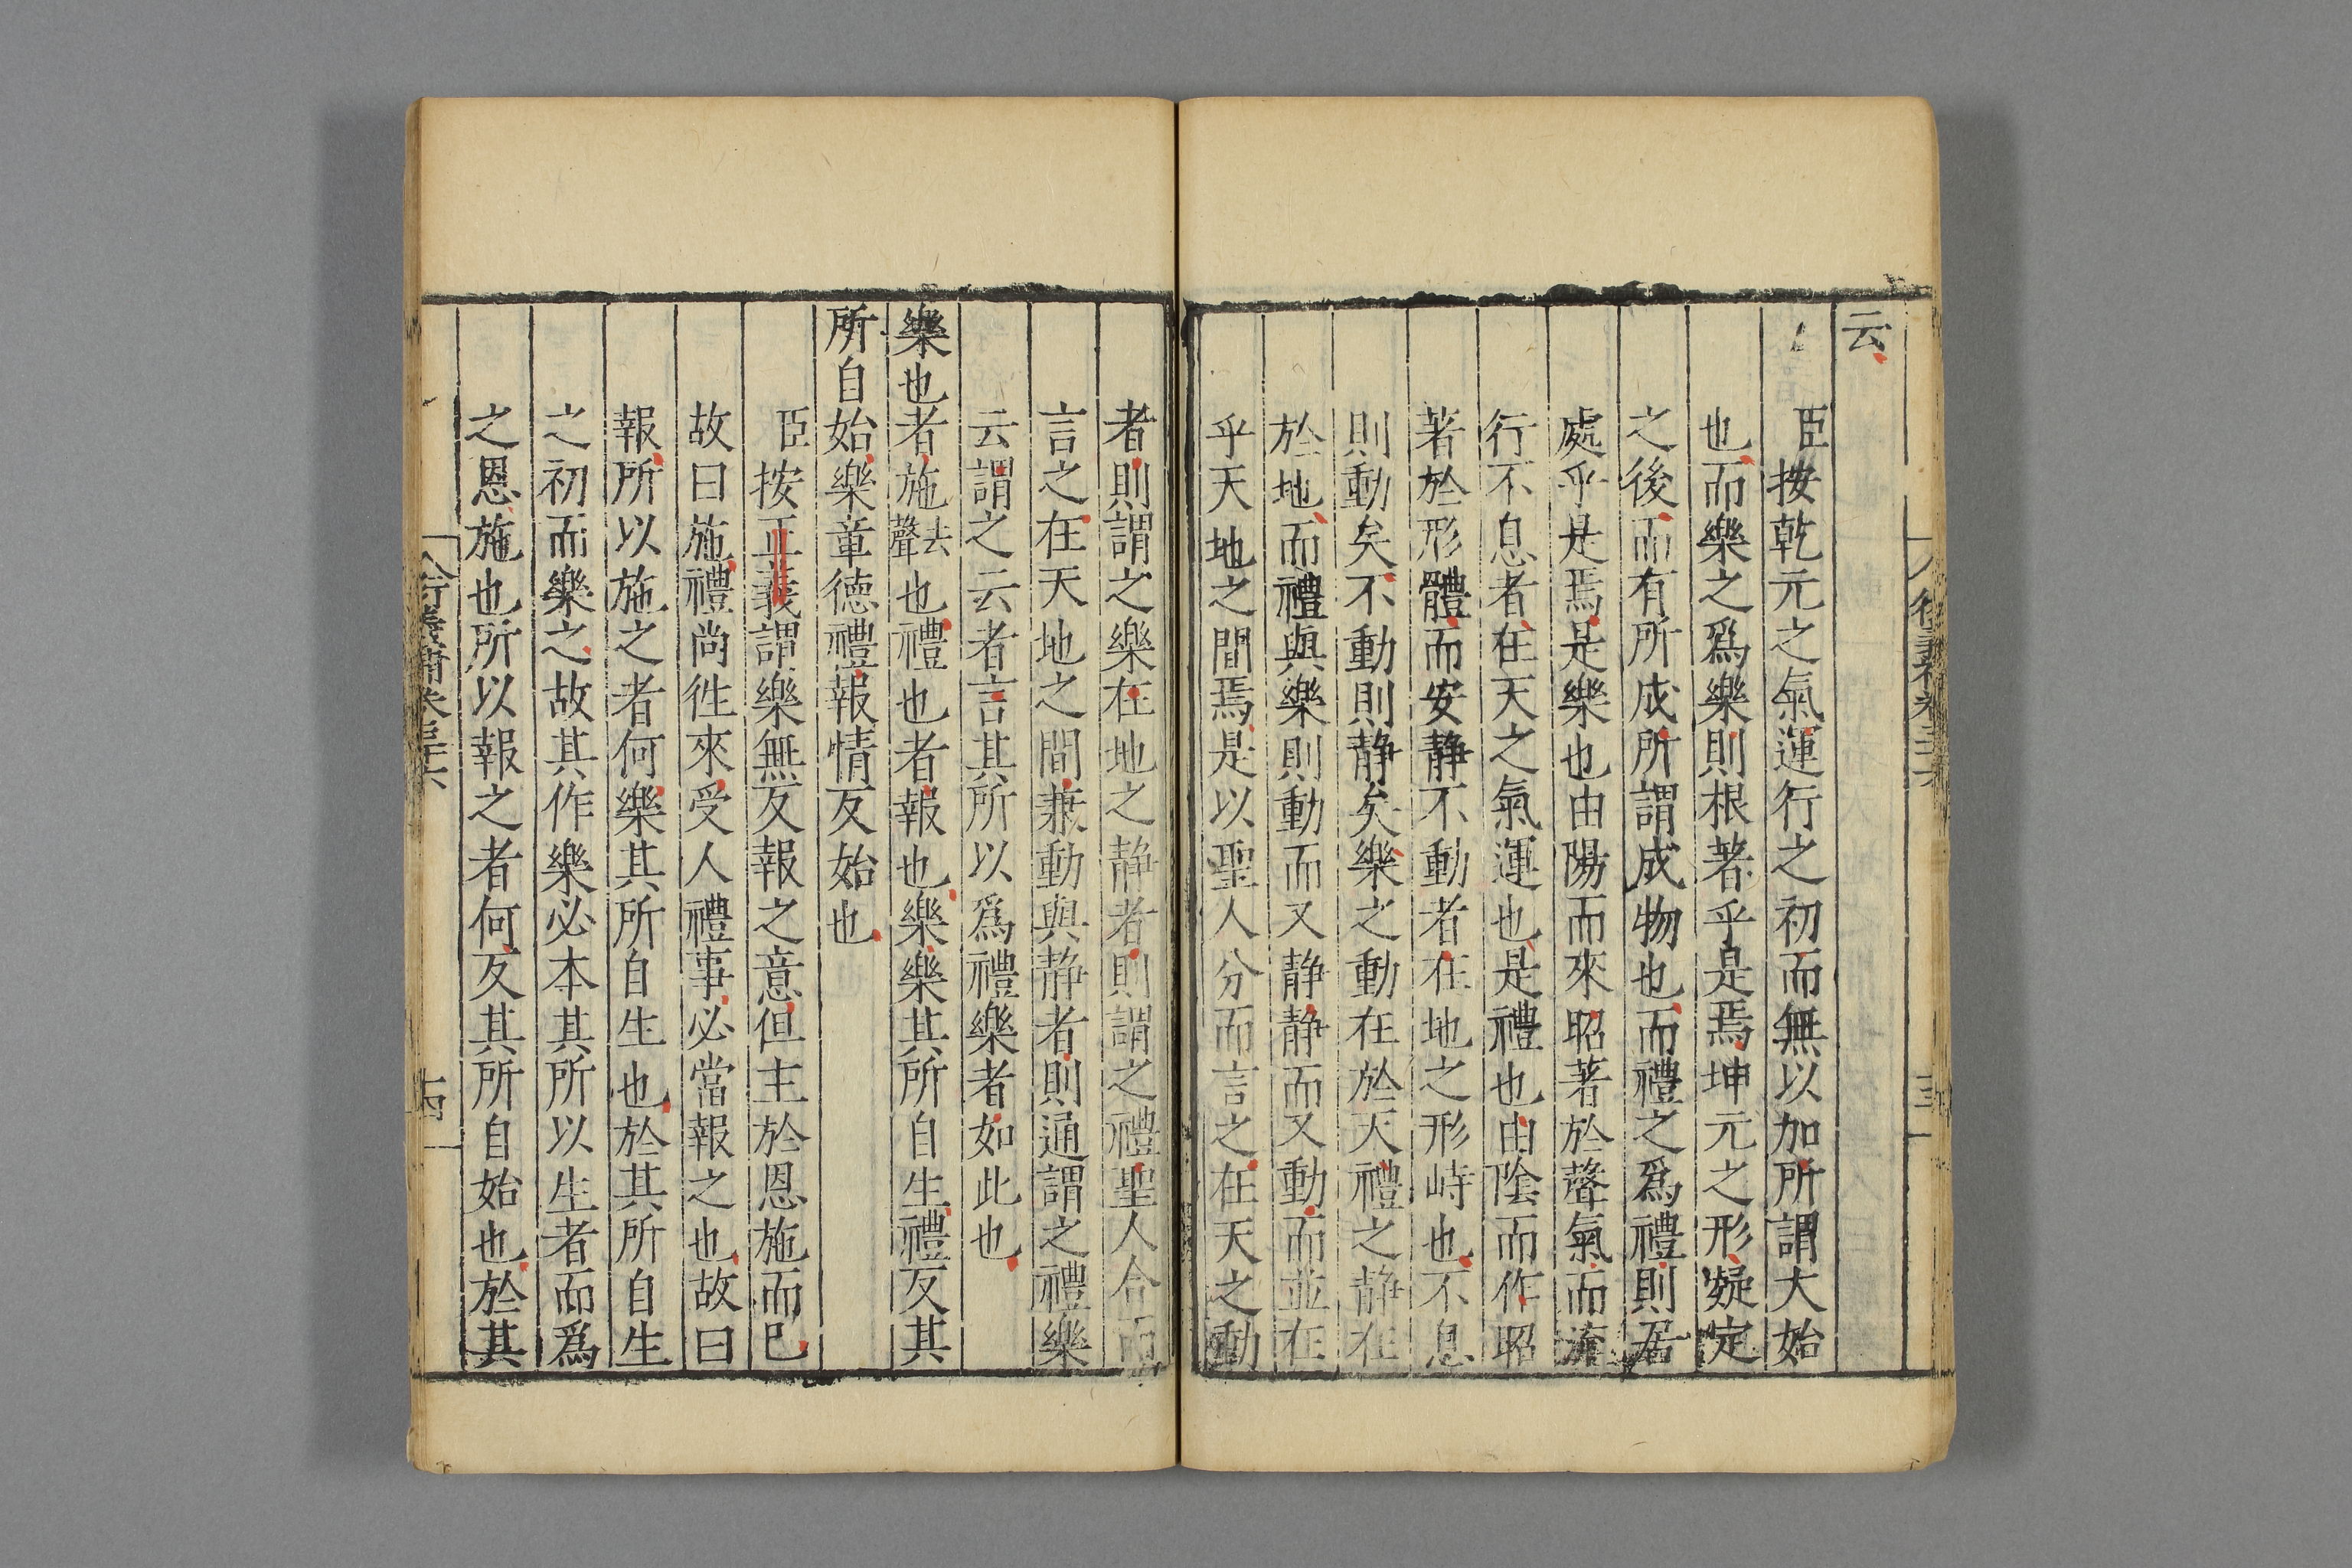 云
臣按乾元之氣運行之初而無以加所謂大始
也而樂之爲樂則根著乎是焉坤元之形凝定
之後而有所成所謂成物也而禮之爲禮則居
處乎是焉是樂也由陽而來昭著於聲氣而流
行不息者在天之氣運也是禮也由陰而作昭
著於形體而安靜不動者在地之形峙也不息
則動矣不動則静矣樂之動在於天禮之静在
於地而禮與樂則動而又静静而又動而並在
乎天地之間焉是以聖人分而言之在天之動
者則謂之樂在地之静者則謂之禮聖人合而
言之在天地之間兼動與静者則通謂之禮樂
云謂之云者言其所以爲禮樂者如此也
樂也者施去聲也禮也者報也樂樂其所自生禮反其
所自始樂章德禮報情反始也
臣按正義謂樂無反報之意但主於恩施而已
故曰施禮尚徃來受人禮事必當報之也故曰
報所以施之者何樂其所自生也於其所自生
之初而樂之故其作樂必本其所以生者而爲
之恩施也所以報之者何反其所自始也於其